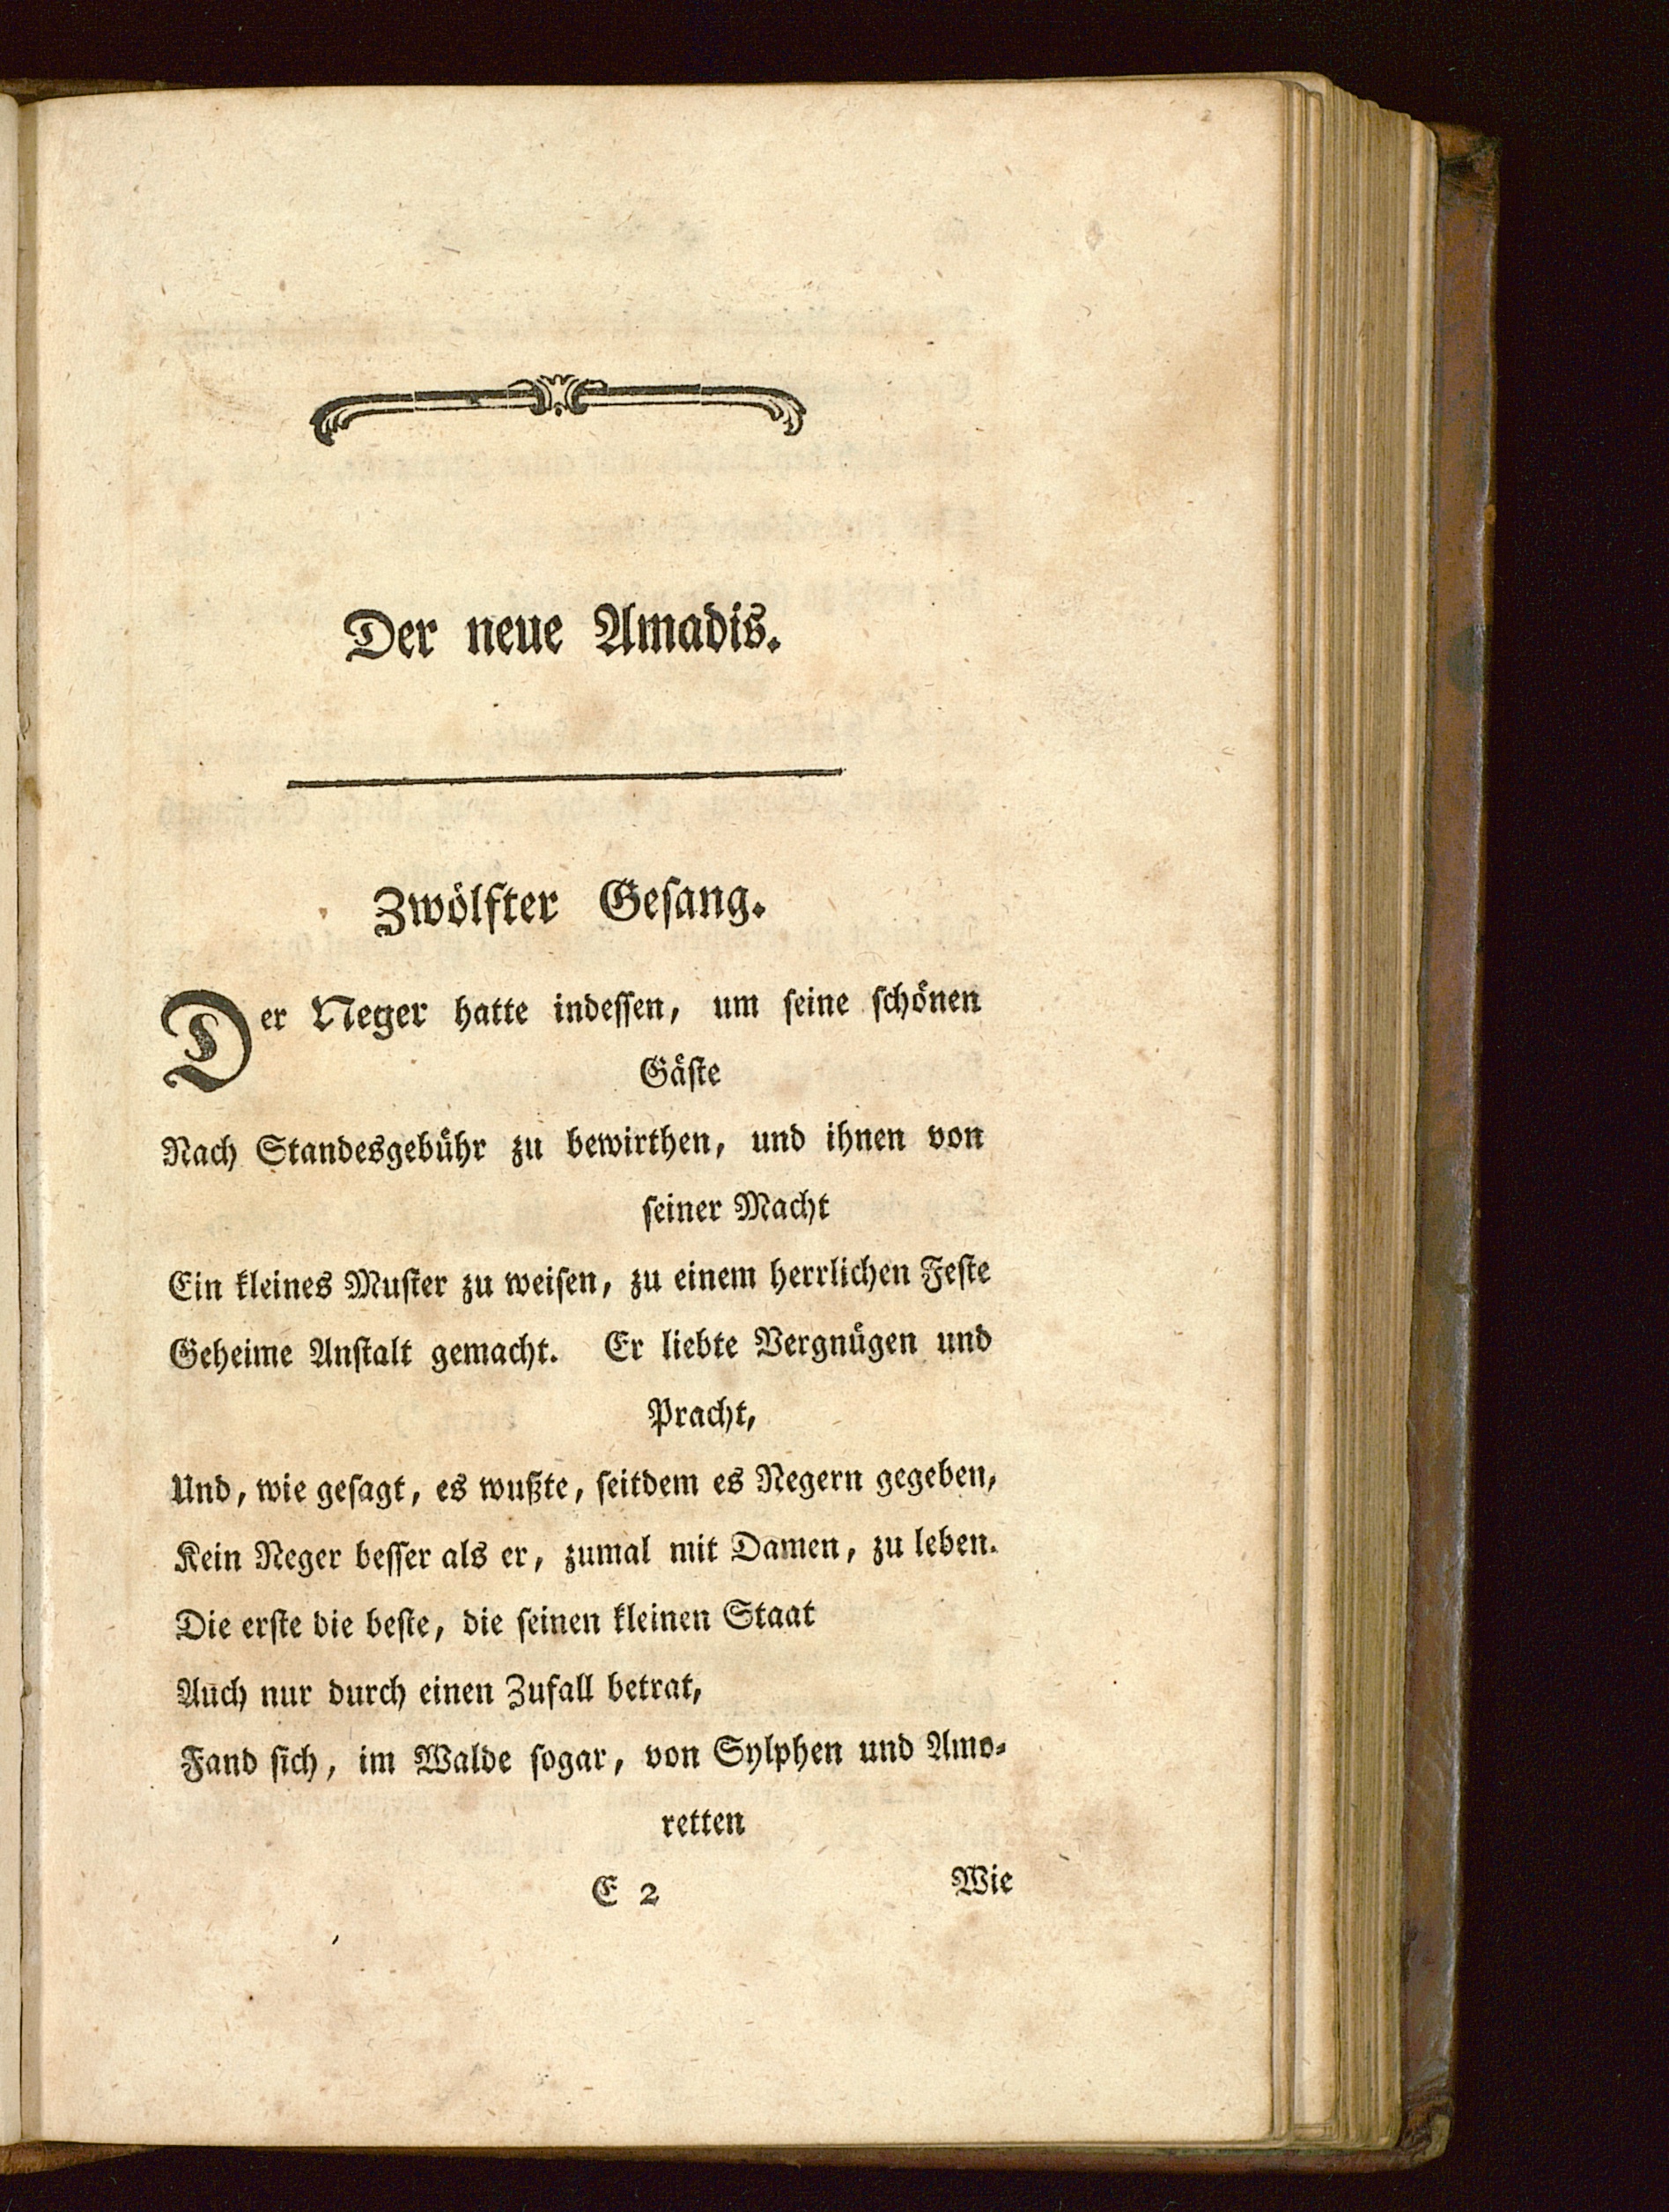 Der neue Amadis.
Zwölfter Gesang.
Der Neger hatte indessen, um seine schönen
Gäste
Nach Standesgebühr zu bewirthen, und ihnen von
seiner Macht
Ein kleines Muster zu weisen, zu einem herrlichen Feste
Geheime Anstalt gemacht. Er liebte Vergnügen und
Pracht,
Und, wie gesagt, es wußte, seitdem es Negern gegeben,
Kein Neger besser als er, zumal mit Damen, zu leben.
Die erste die beste, die seinen kleinen Staat
Auch nur durch einen Zufall betrat,
Fand sich, im Walde sogar, von Sylphen und Amo-
retten
E 2
Wie